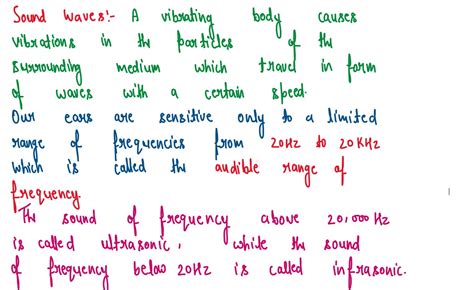 Sound Waves:- A vibrating body causes
vibrations in the particles of the
surrounding medium which travel in form
of waves with a certain speed.
Our ears are sensitive only to a limited
range of frequencies from 20Hz to 20KHz
which is called the audible range of
frequency.
The sound of frequency above 20,000 Hz
is called ultrasonic, while the sound
of frequency below 20Hz is called infrasonic.